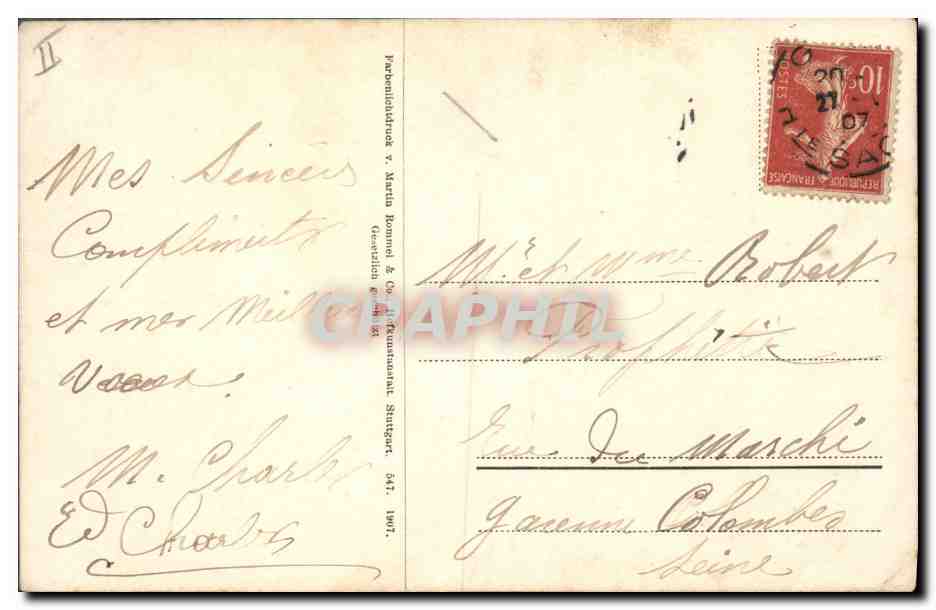 II
Mes Sincères
Compliments
et mes Meilleurs
Vœux.
M. Charles
Ed Charles
Farbenlichtdruck v. Martin Rommel & Co., Hofkunstanstalt, Stuttgart. 547. 1907.
Gesetzlich geschützt
10c
POSTES
REPUBLIQUE FRANÇAISE
20
27
07
Mr. et Mme Robert
Rue du Marché
garenne Colombes
Seine
CPAPHIL